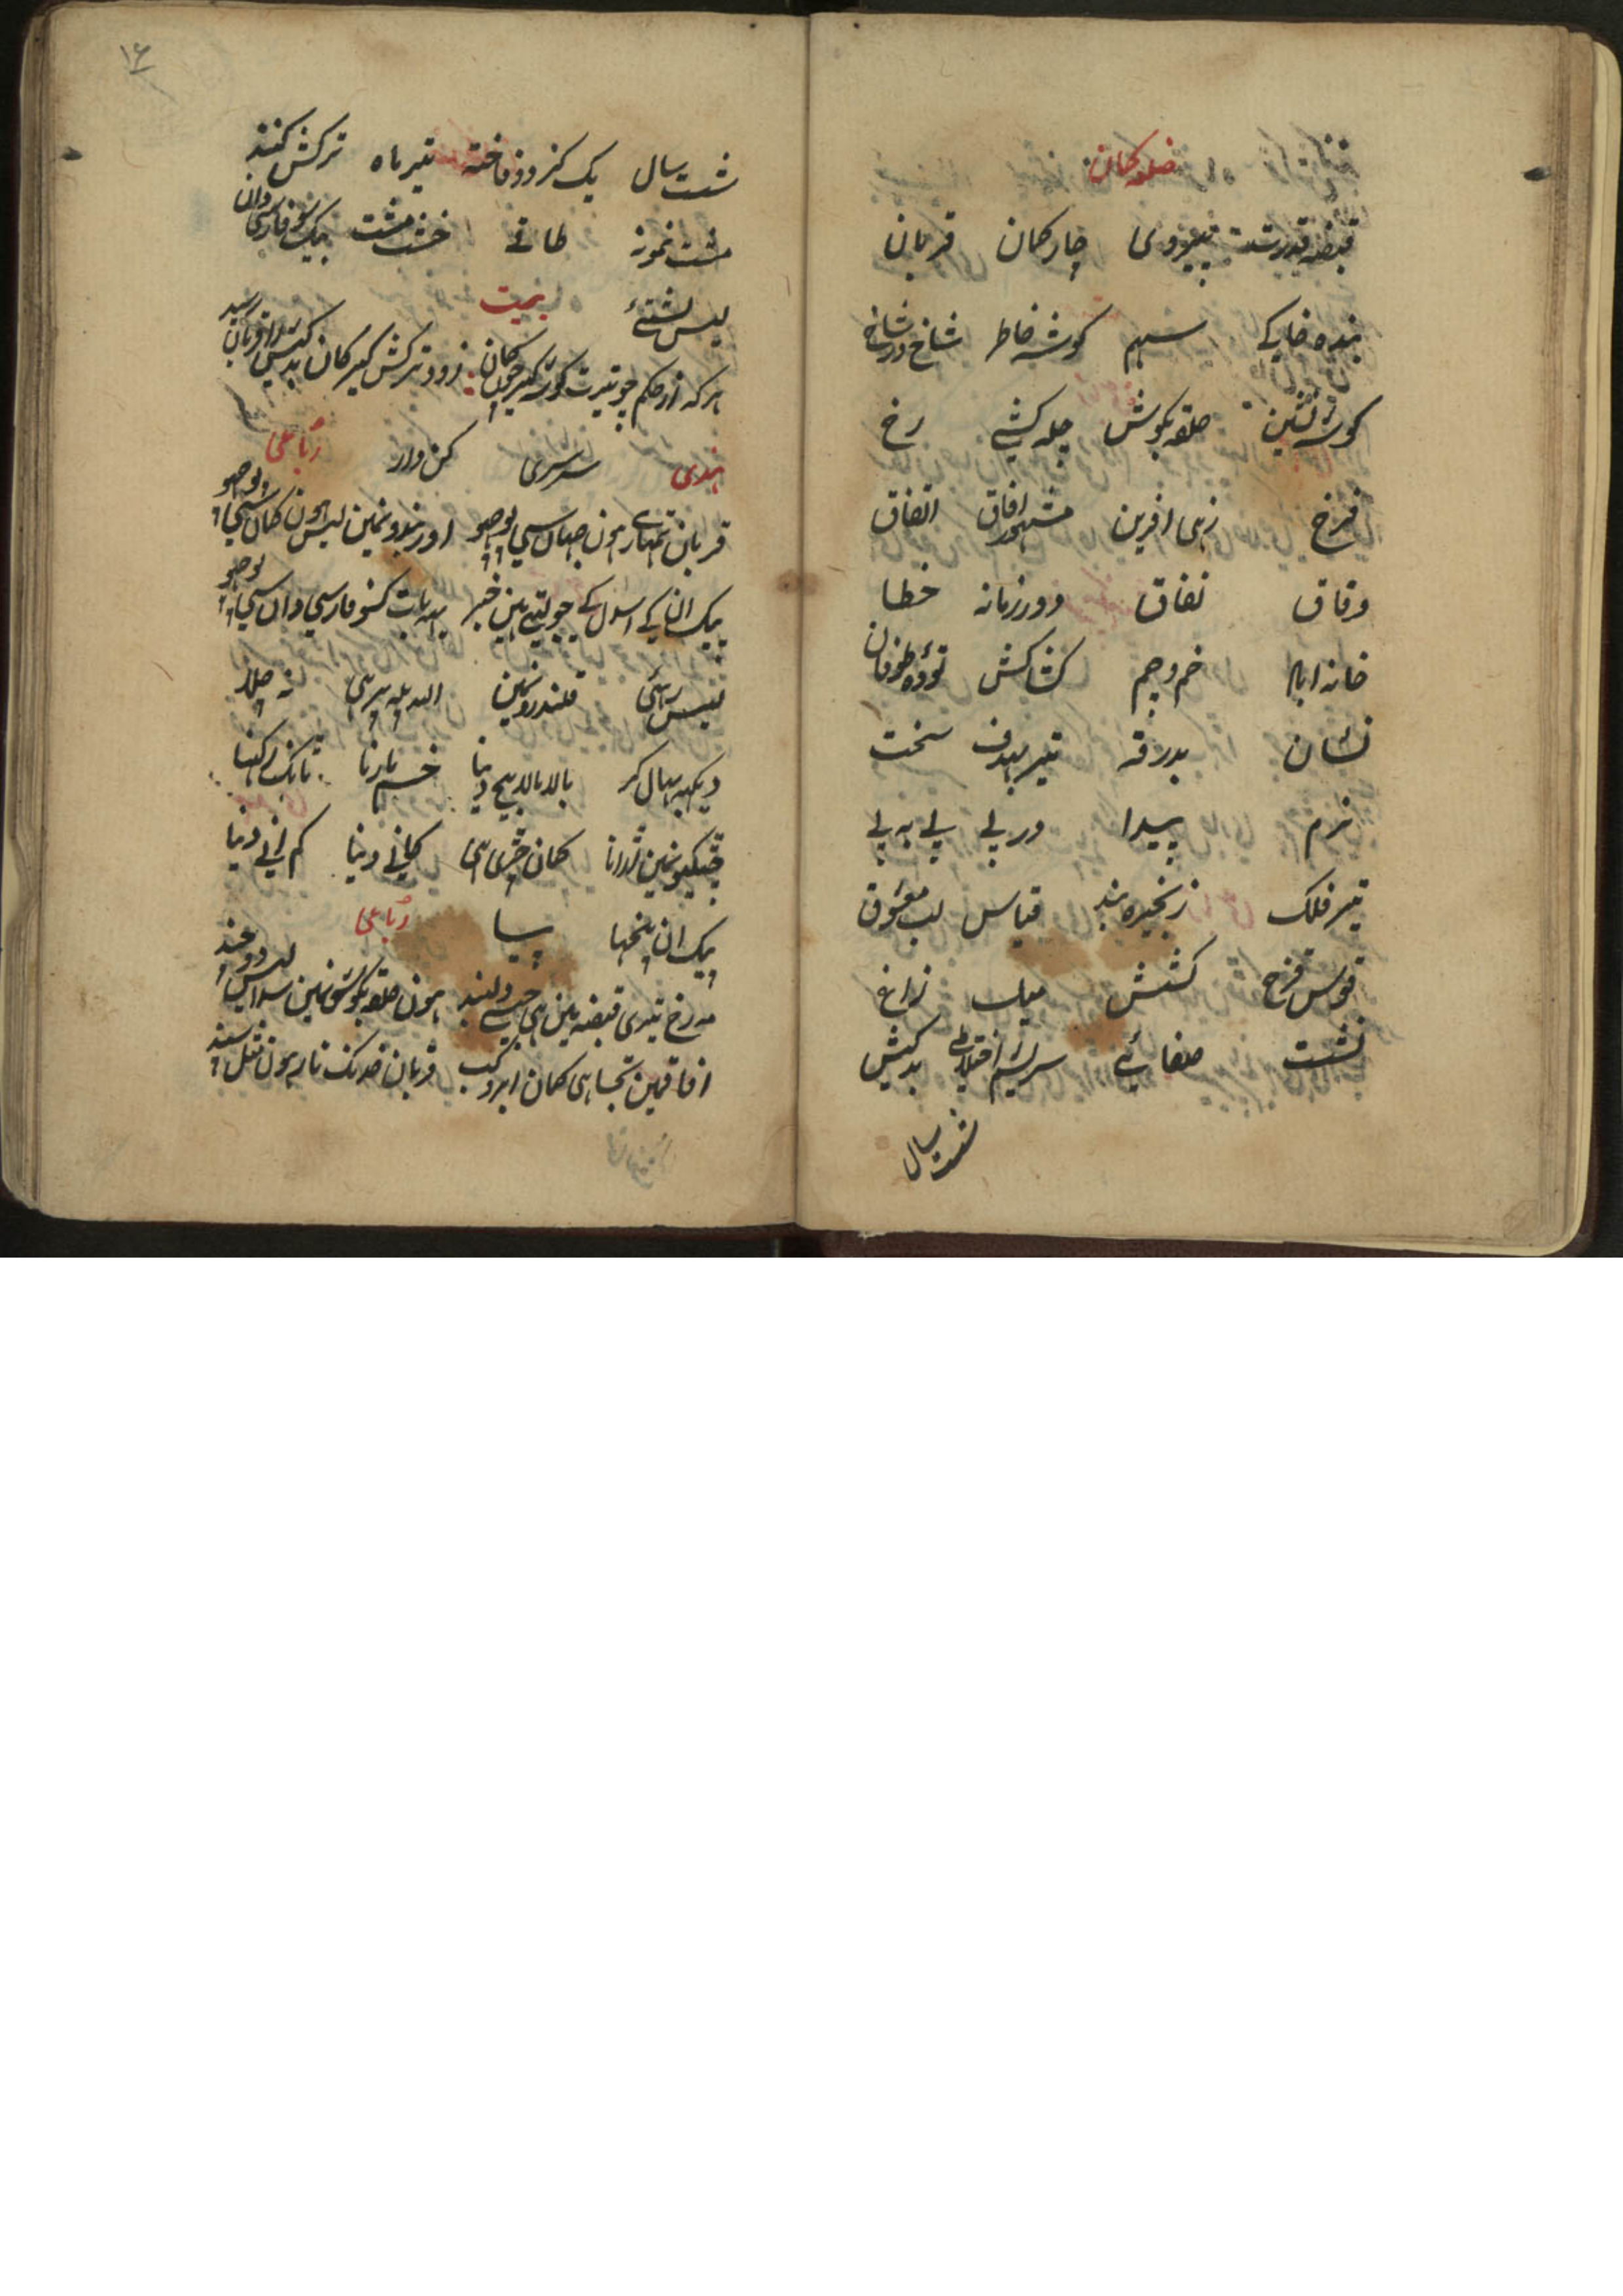 ضلع کمان
قبضه قدرت نیروی چار کمان قربان
بنده خانکے سهم کوشه خاطر شاخ در شاخ
کوشه نشین حلقه بکوش چله کشے رخ
فرخ زهی افرین مشهور افاق اتفاق
وفاق نفاق دور زمانه خطا
خانه خم و چم کشاکش توده طوفان
نشان بدرقه تیر بهدف سخت
نرم پیدا در پے پے به پے
تیر فلک زنجیره بند قیاس لب معشوق
قوس قزح کشش میل زاغ
نشست صفائے سریشم اختلاط بدکیش
شست سال
۱۶
شست سال یک کز دو فاخته تیر ماه ترکش کنند
مشت نمونه طاق خشت مشت فارسی دان
لیس
بیت
هر که از حکم چو تیرت کوشه کیرد چون کمان زود ترکش کیر کمان بد کیش را قربان رسید
هندی سرسری کن وار رباعی
قربان تمهارے هون جهان سی بوجهو اور بندونمین لیس هون کمان سی بوجهو
پیک ان کے اس دل کے جو لیتے هین خبر یهه بات کسو فارسی دان سی بوجهو
لیس قلندرونمین اله پله پیر هی نه چلا
دیکهه بهال کر بالا بالا بهیج دینا خم مارنا تانک رکهنا
چٹکیونمین اڑانا کمان چڑی هی کمانے دینا کم انے دینا
پیک ان پنچها پیا رباعی
مه رخ تیری قبضه مین هی دلبند هون حلقه بکوشونمین سدا لیس دو چند
افاقمین تجسا هی کمان ابرو کب قربان خدنک نار هون مثل سپند